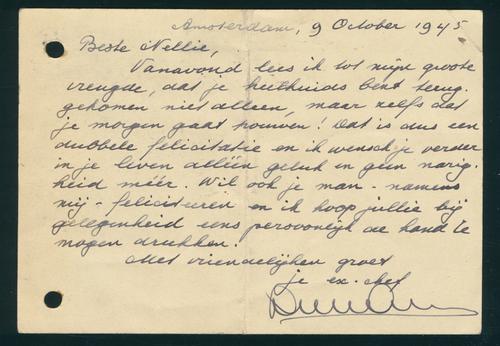 Amsterdam, 9 October 1945
Beste Nellie,
Vanavond lees ik tot mijn groote
vreugde, dat je heelhuids bent terug.
gekomen niet alleen, maar zelfs dat
je morgen gaat trouwen! Dat is dus een
dubbele felicitatie en ik wensch je verder
in je leven alléén geluk en geen narig-
heid méér. Wil ook je man - namens
mij - feliciteeren en ik hoop jullie bij
gelegenheid eens persoonlijk de hand te
mogen drukken!
Met vriendelijken groet
je ex. chef